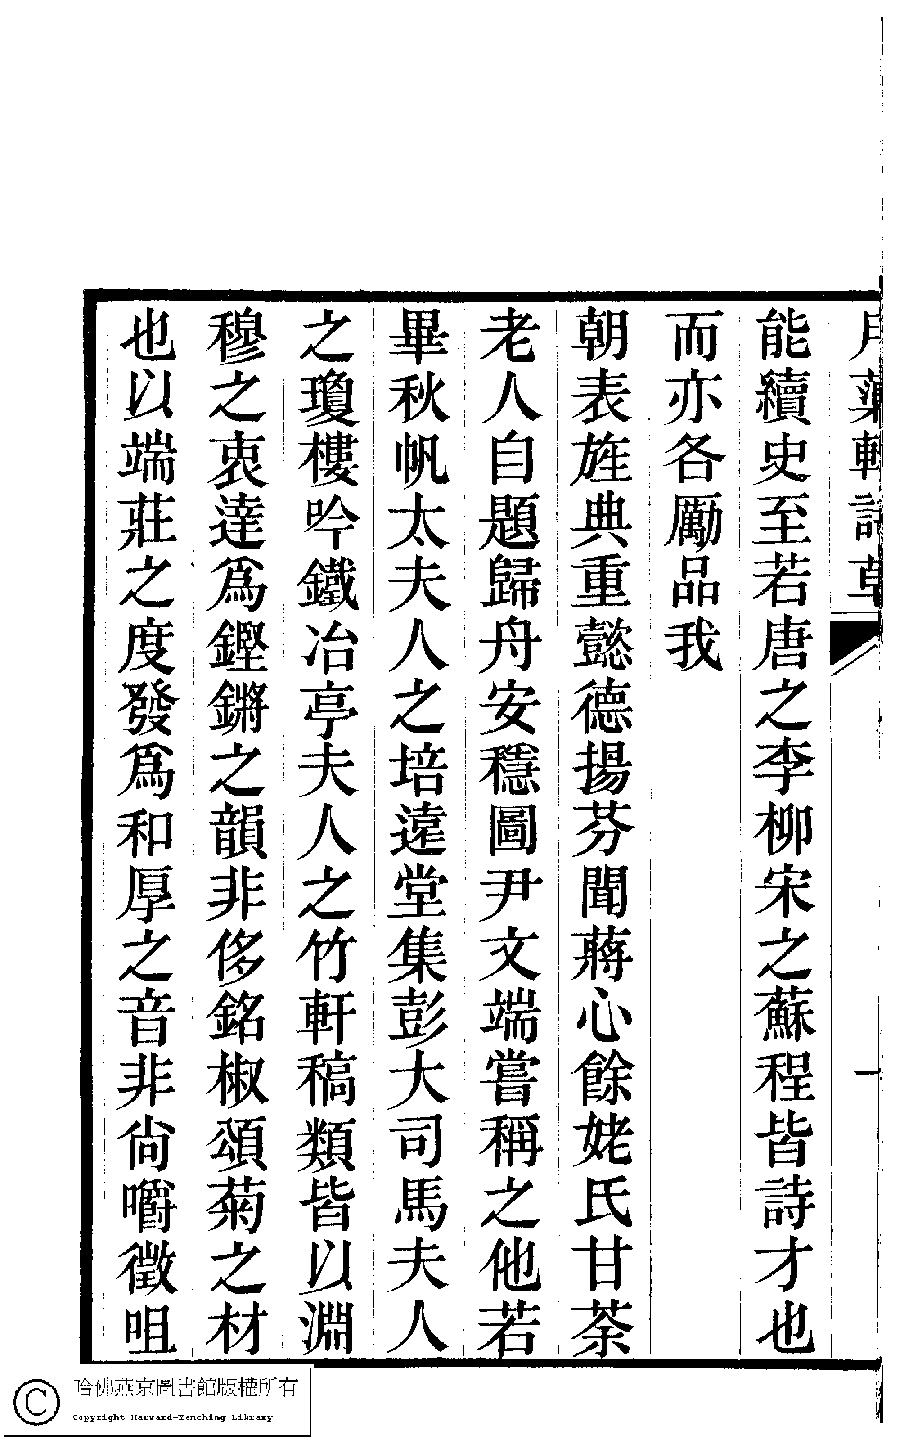 月藥軒詩草
一
能續史至若唐之李柳宋之蘇程皆詩才也
而亦各厲品我
朝表旌典重懿德揚芬聞蔣心餘姥氏甘荼
老人自題歸舟安穩圖尹文端嘗稱之他若
畢秋帆太夫人之培遠堂集彭大司馬夫人
之瓊樓吟鐵冶亭夫人之竹軒稿類皆以淵
穆之衷達爲鏗鏘之韻非侈銘椒頌菊之材
也以端莊之度發爲和厚之音非尙嚼徵咀
哈佛燕京圖書館版權所有
Copyright Harvard-Yenching Library